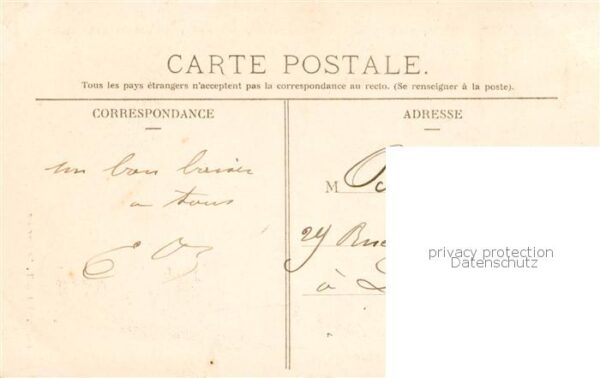 CARTE POSTALE.
Tous les pays étrangers n'acceptent pas la correspondance au recto. (Se renseigner à la poste).
CORRESPONDANCE
ADRESSE
un bon baiser
a tous
M
29 Rue
à
privacy protection
Datenschutz